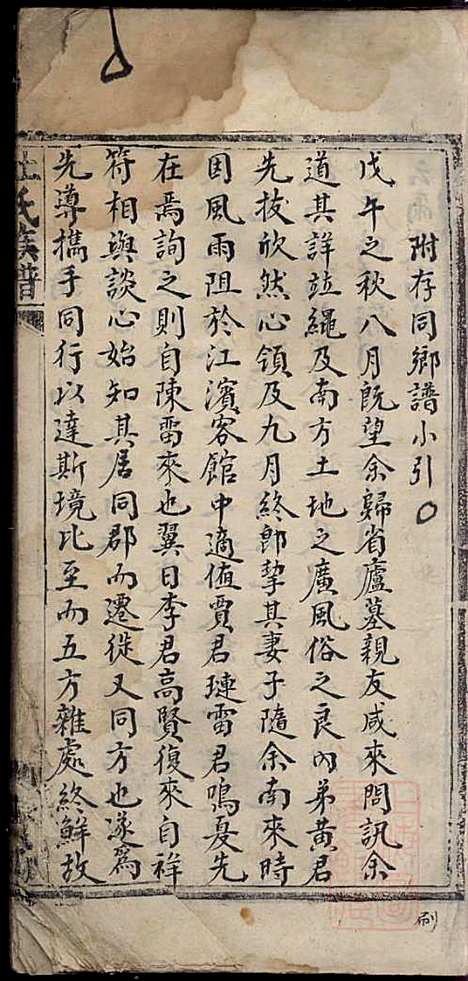 附存同鄉譜小引
戊午之秋八月既望余歸省廬墓親友咸來問訊余
道其詳竝繩及南方土地之廣風俗之良內弟黃君
先拔欣然心領及九月終郎挈其妻子隨余南來時
因風雨阻於江濱客館中適值賈君璉雷君鳴憂先
在焉詢之則自陳雷來也翼日李君高賢復來自祥
符相與談心始知其居同郡而遷徙又同方也遂為
先導攜手同行以達斯境比至而五方雜處終鮮故
氏族譜
刷